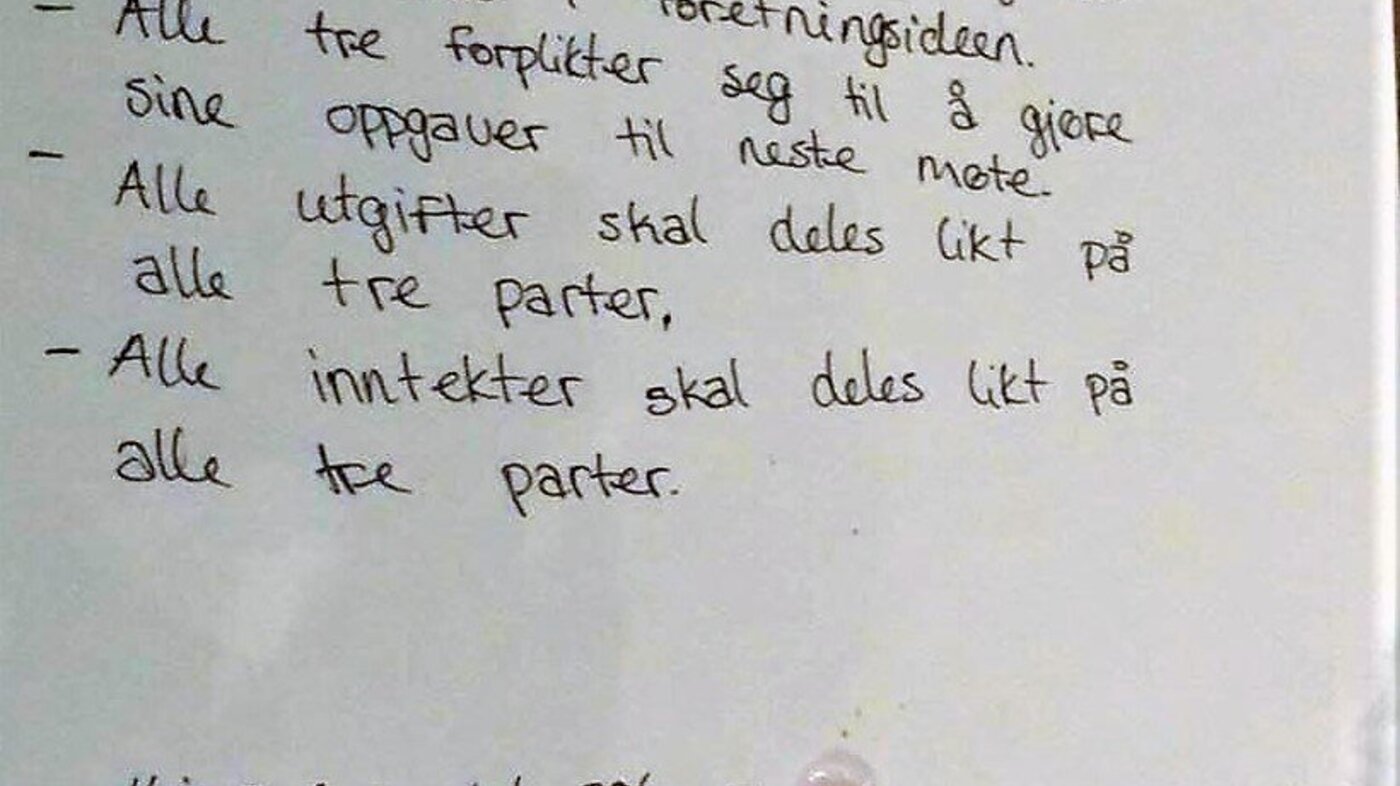 foretningsideen.
- Alle tre forplikter seg til å gjøre
sine oppgaver til neste møte.
- Alle utgifter skal deles likt på
alle tre parter.
- Alle inntekter skal deles likt på
alle tre parter.